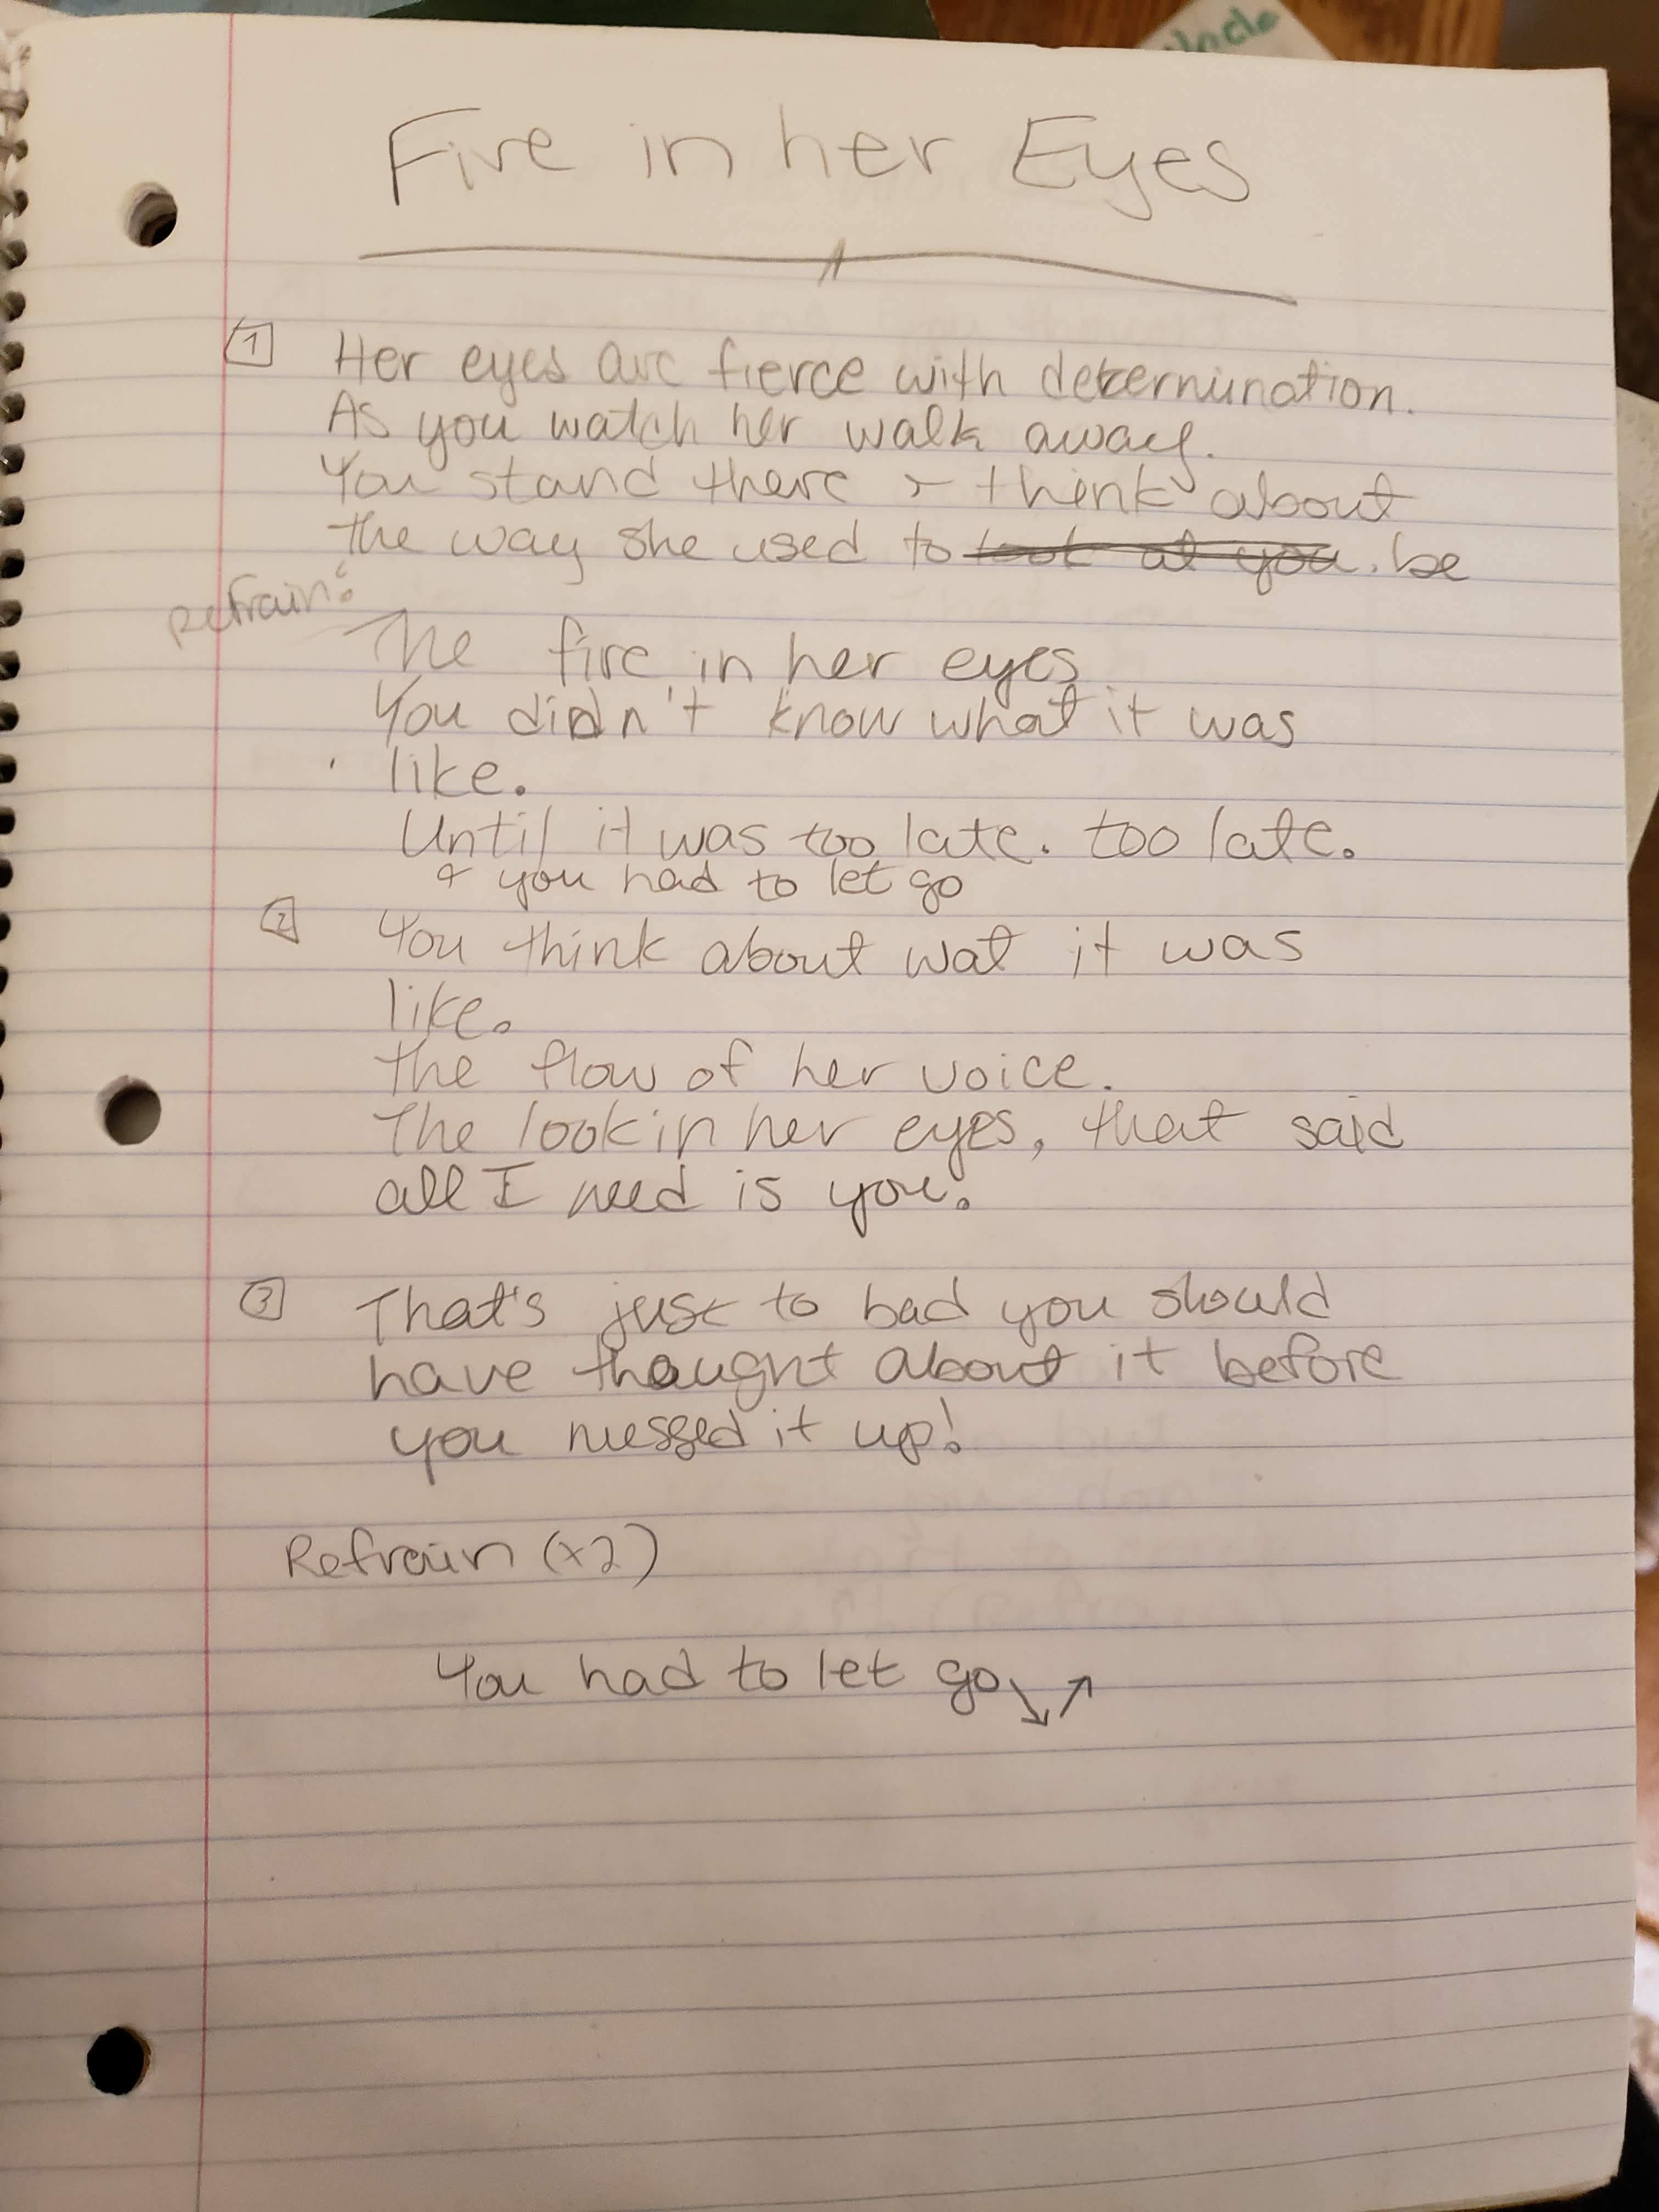 Uncle
Fire in her Eyes
1 Her eyes are fierce with determination.
As you watch her walk away.
You stand there & think about
the way she used to look at you. be
Refrain:
The fire in her eyes
You didn't know what it was
like.
Until it was too late. too late.
& you had to let go
2 You think about wat it was
like.
the flow of her voice.
The look in her eyes, that said
all I need is you.
3 That's just to bad you should
have thought about it before
you messed it up!
Refrain (x2)
You had to let go ↘ ↗